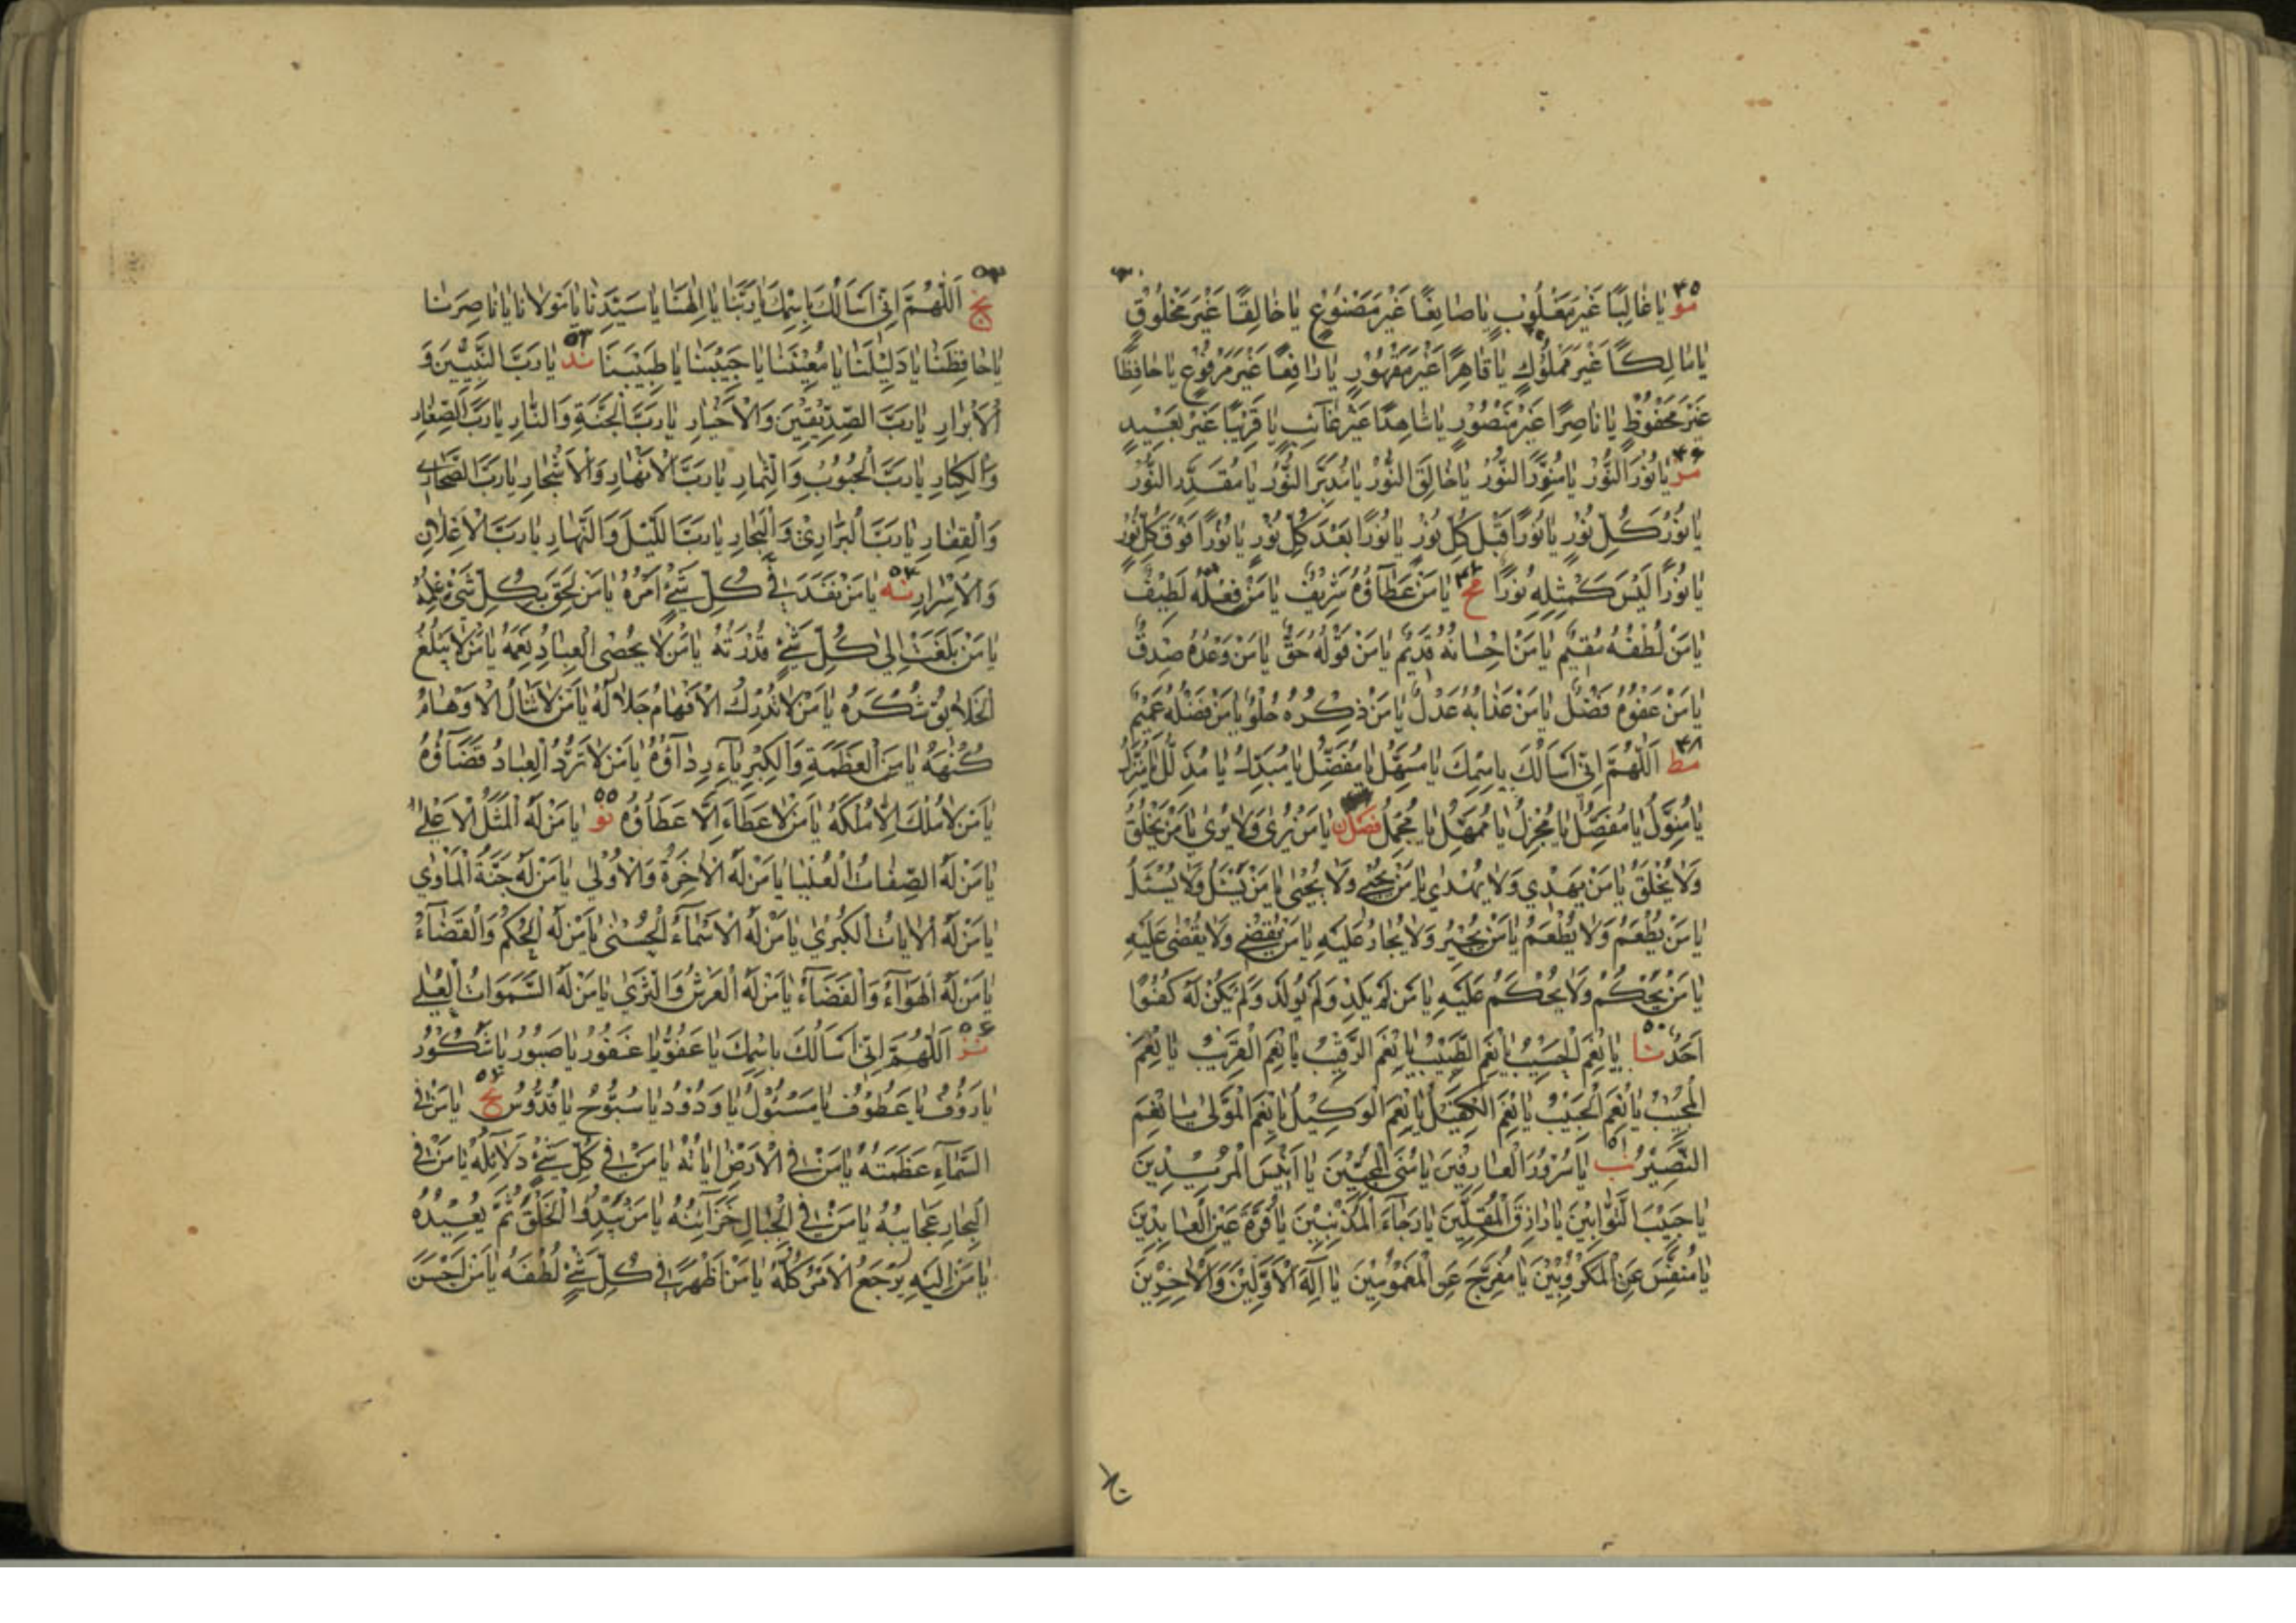 ٤٥
مو يٰا غٰالِبًا غَيْرَ مَغْلُوبٍ يٰا صٰانِعًا غَيْرَ مَصْنُوعٍ يٰا خٰالِقًا غَيْرَ مَخْلُوقٍ
يٰا مٰالِكًا غَيْرَ مَمْلُوكٍ يٰا قٰاهِرًا غَيْرَ مَقْهُورٍ يٰا رٰافِعًا غَيْرَ مَرْفُوعٍ يٰا حٰافِظًا
غَيْرَ مَحْفُوظٍ يٰا نٰاصِرًا غَيْرَ مَنْصُورٍ يٰا شٰاهِدًا غَيْرَ غٰآئِبٍ يٰا قَرِيبًا غَيْرَ بَعِيدٍ
٤٦
مز يٰا نُورَ النُّورِ يٰا مُنَوِّرَ النُّورِ يٰا خٰالِقَ النُّورِ يٰا مُدَبِّرَ النُّورِ يٰا مُقَدِّرَ النُّورِ
يٰا نُورَ كُلِّ نُورٍ يٰا نُورًا قَبْلَ كُلِّ نُورٍ يٰا نُورًا بَعْدَ كُلِّ نُورٍ يٰا نُورًا فَوْقَ كُلِّ نُورٍ
يٰا نُورًا لَيْسَ كَمِثْلِهِ نُورًا مح يٰا مَنْ عَطٰآؤُهُ شَرِيفٌ يٰا مَنْ فِعْلُهُ لَطِيفٌ
يٰا مَنْ لُطْفُهُ مُقِيمٌ يٰا مَنْ اِحْسٰانُهُ قَدِيمٌ يٰا مَنْ قَوْلُهُ حَقٌّ يٰا مَنْ وَعْدُهُ صِدْقٌ
يٰا مَنْ عَفْوُهُ فَضْلٌ يٰا مَنْ عَذٰابُهُ عَدْلٌ يٰا مَنْ ذِكْرُهُ حُلْوٌ يٰا مَنْ فَضْلُهُ عَمِيمٌ
٤٨
مط اَللّٰهُمَّ اِنّٖى اَسْاَلُكَ بِاسْمِكَ يٰا مُسَهِّلُ يٰا مُفَضِّلُ يٰا مُبَدِّلُ يٰا مُذَلِّلُ يٰا مُنَزِّلُ
يٰا مُنَوِّلُ يٰا مُفَصِّلُ يٰا مُجْزِلُ يٰا مُمْهِلُ يٰا مُجْمِلُ فصل ن يٰا مَنْ يَرٰى وَلٰا يُرٰى يٰا مَنْ يَخْلُقُ
وَلٰا يُخْلَقُ يٰا مَنْ يَهْدِي وَلٰا يُهْدٰى يٰا مَنْ يُحْيِي وَلٰا يُحْيٰى يٰا مَنْ يَسْئَلُ وَلٰا يُسْئَلُ
يٰا مَنْ يُطْعِمُ وَلٰا يُطْعَمُ يٰا مَنْ يُجِيرُ وَلٰا يُجٰارُ عَلَيْهِ يٰا مَنْ يَقْضِي وَلٰا يُقْضٰى عَلَيْهِ
يٰا مَنْ يَحْكُمُ وَلٰا يُحْكَمُ عَلَيْهِ يٰا مَنْ لَمْ يَلِدْ وَلَمْ يُولَدْ وَلَمْ يَكُنْ لَهُ كُفُوًا
٥٠
اَحَدٌ نا يٰا نِعْمَ الْحَسِيبُ يٰا نِعْمَ الطَّبِيبُ يٰا نِعْمَ الرَّقِيبُ يٰا نِعْمَ الْقَرِيبُ يٰا نِعْمَ
الْمُجِيبُ يٰا نِعْمَ الْحَبِيبُ يٰا نِعْمَ الْكَفِيلُ يٰا نِعْمَ الْوَكِيلُ يٰا نِعْمَ الْمَوْلٰى يٰا نِعْمَ
٥١
النَّصِيرُ نب يٰا سُرُورَ الْعٰارِفِينَ يٰا مُنَى الْمُحِبِّينَ يٰا اَنِيسَ الْمُرِيدِينَ
يٰا حَبِيبَ التَّوّٰابِينَ يٰا رٰازِقَ الْمُقِلِّينَ يٰا رَجٰآءَ الْمُذْنِبِينَ يٰا قُرَّةَ عَيْنِ الْعٰابِدِينَ
يٰا مُنَفِّسَ عَنِ الْمَكْرُوبِينَ يٰا مُفَرِّجَ عَنِ الْمَغْمُومِينَ يٰا اِلٰهَ الْاَوَّلِينَ وَالْاٰخِرِينَ
نج اَللّٰهُمَّ اِنّٖى اَسْاَلُكَ بِاسْمِكَ يٰا رَبَّنٰا يٰا اِلٰهَنٰا يٰا سَيِّدَنٰا يٰا مَوْلٰانٰا يٰا نٰاصِرَنٰا
٥٣
يٰا حٰافِظَنٰا يٰا دَلِيلَنٰا يٰا مُعِينَنٰا يٰا حَبِيبَنٰا يٰا طَبِيبَنٰا ند يٰا رَبَّ النَّبِيِّينَ وَ
الْاَبْرٰارِ يٰا رَبَّ الصِّدِّيقِينَ وَالْاَخْيٰارِ يٰا رَبَّ الْجَنَّةِ وَالنّٰارِ يٰا رَبَّ الصِّغٰارِ
وَالْكِبٰارِ يٰا رَبَّ الْحُبُوبِ وَالثِّمٰارِ يٰا رَبَّ الْاَنْهٰارِ وَالْاَشْجٰارِ يٰا رَبَّ الصَّحٰارٖى
وَالْقِفٰارِ يٰا رَبَّ الْبَرٰارِيِّ وَالْبِحٰارِ يٰا رَبَّ اللَّيْلِ وَالنَّهٰارِ يٰا رَبَّ الْاِعْلٰانِ
٥٤
وَالْاِسْرٰارِ نه يٰا مَنْ نَفَذَ فِي كُلِّ شَيْءٍ اَمْرُهُ يٰا مَنْ لَحِقَ بِكُلِّ شَيْءٍ عِلْمُهُ
يٰا مَنْ بَلَغَتْ اِلٰى كُلِّ شَيْءٍ قُدْرَتُهُ يٰا مَنْ لٰا يُحْصِى الْعِبٰادُ نِعَمَهُ يٰا مَنْ لٰا يَبْلُغُ
الْخَلٰايِقُ شُكْرَهُ يٰا مَنْ لٰا تُدْرِكُ الْاَفْهٰامُ جَلٰالَهُ يٰا مَنْ لٰا تَنٰالُ الْاَوْهٰامُ
كُنْهَهُ يٰا مَنِ الْعَظَمَةُ وَالْكِبْرِيٰآءُ رِدٰآؤُهُ يٰا مَنْ لٰا تَرُدُّ الْعِبٰادُ قَضٰآؤُهُ
٥٥
يٰا مَنْ لٰا مُلْكَ اِلّٰا مُلْكُهُ يٰا مَنْ لٰا عَطٰآءَ اِلّٰا عَطٰآؤُهُ نو يٰا مَنْ لَهُ الْمَثَلُ الْاَعْلٰى
يٰا مَنْ لَهُ الصِّفٰاتُ الْعُلْيٰا يٰا مَنْ لَهُ الْاٰخِرَةُ وَالْاُولٰى يٰا مَنْ لَهُ جَنَّةُ الْمَأْوٰي
يٰا مَنْ لَهُ الْاٰيٰاتُ الْكُبْرٰي يٰا مَنْ لَهُ الْاَسْمٰآءُ الْحُسْنٰى يٰا مَنْ لَهُ الْحُكْمُ وَالْقَضٰآءُ
يٰا مَنْ لَهُ الْهَوٰآءُ وَالْفَضٰآءُ يٰا مَنْ لَهُ الْعَرْشُ وَالثَّرٰي يٰا مَنْ لَهُ السَّمٰوَاتُ الْعُلٰى
٥٦
نز اَللّٰهُمَّ اِنّٖى اَسْاَلُكَ بِاسْمِكَ يٰا عَفُوُّ يٰا غَفُورُ يٰا صَبُورُ يٰا شَكُورُ
يٰا رَؤُفُ يٰا عَطُوفُ يٰا مَسْئُولُ يٰا وَدُودُ يٰا سُبُّوحُ يٰا قُدُّوسُ نح يٰا مَنْ فِي
السَّمٰآءِ عَظَمَتُهُ يٰا مَنْ فِي الْاَرْضِ اٰيٰاتُهُ يٰا مَنْ فِي كُلِّ شَيْءٍ دَلٰآئِلُهُ يٰا مَنْ فِي
الْبِحٰارِ عَجٰايِبُهُ يٰا مَنْ فِي الْجِبٰالِ خَزٰآئِنُهُ يٰا مَنْ يَبْدَؤُا الْخَلْقَ ثُمَّ يُعِيدُهُ
يٰا مَنْ اِلَيْهِ يَرْجِعُ الْاَمْرُ كُلُّهُ يٰا مَنْ اَظْهَرَ فِي كُلِّ شَيْءٍ لُطْفَهُ يٰا مَنْ اَحْسَنَ